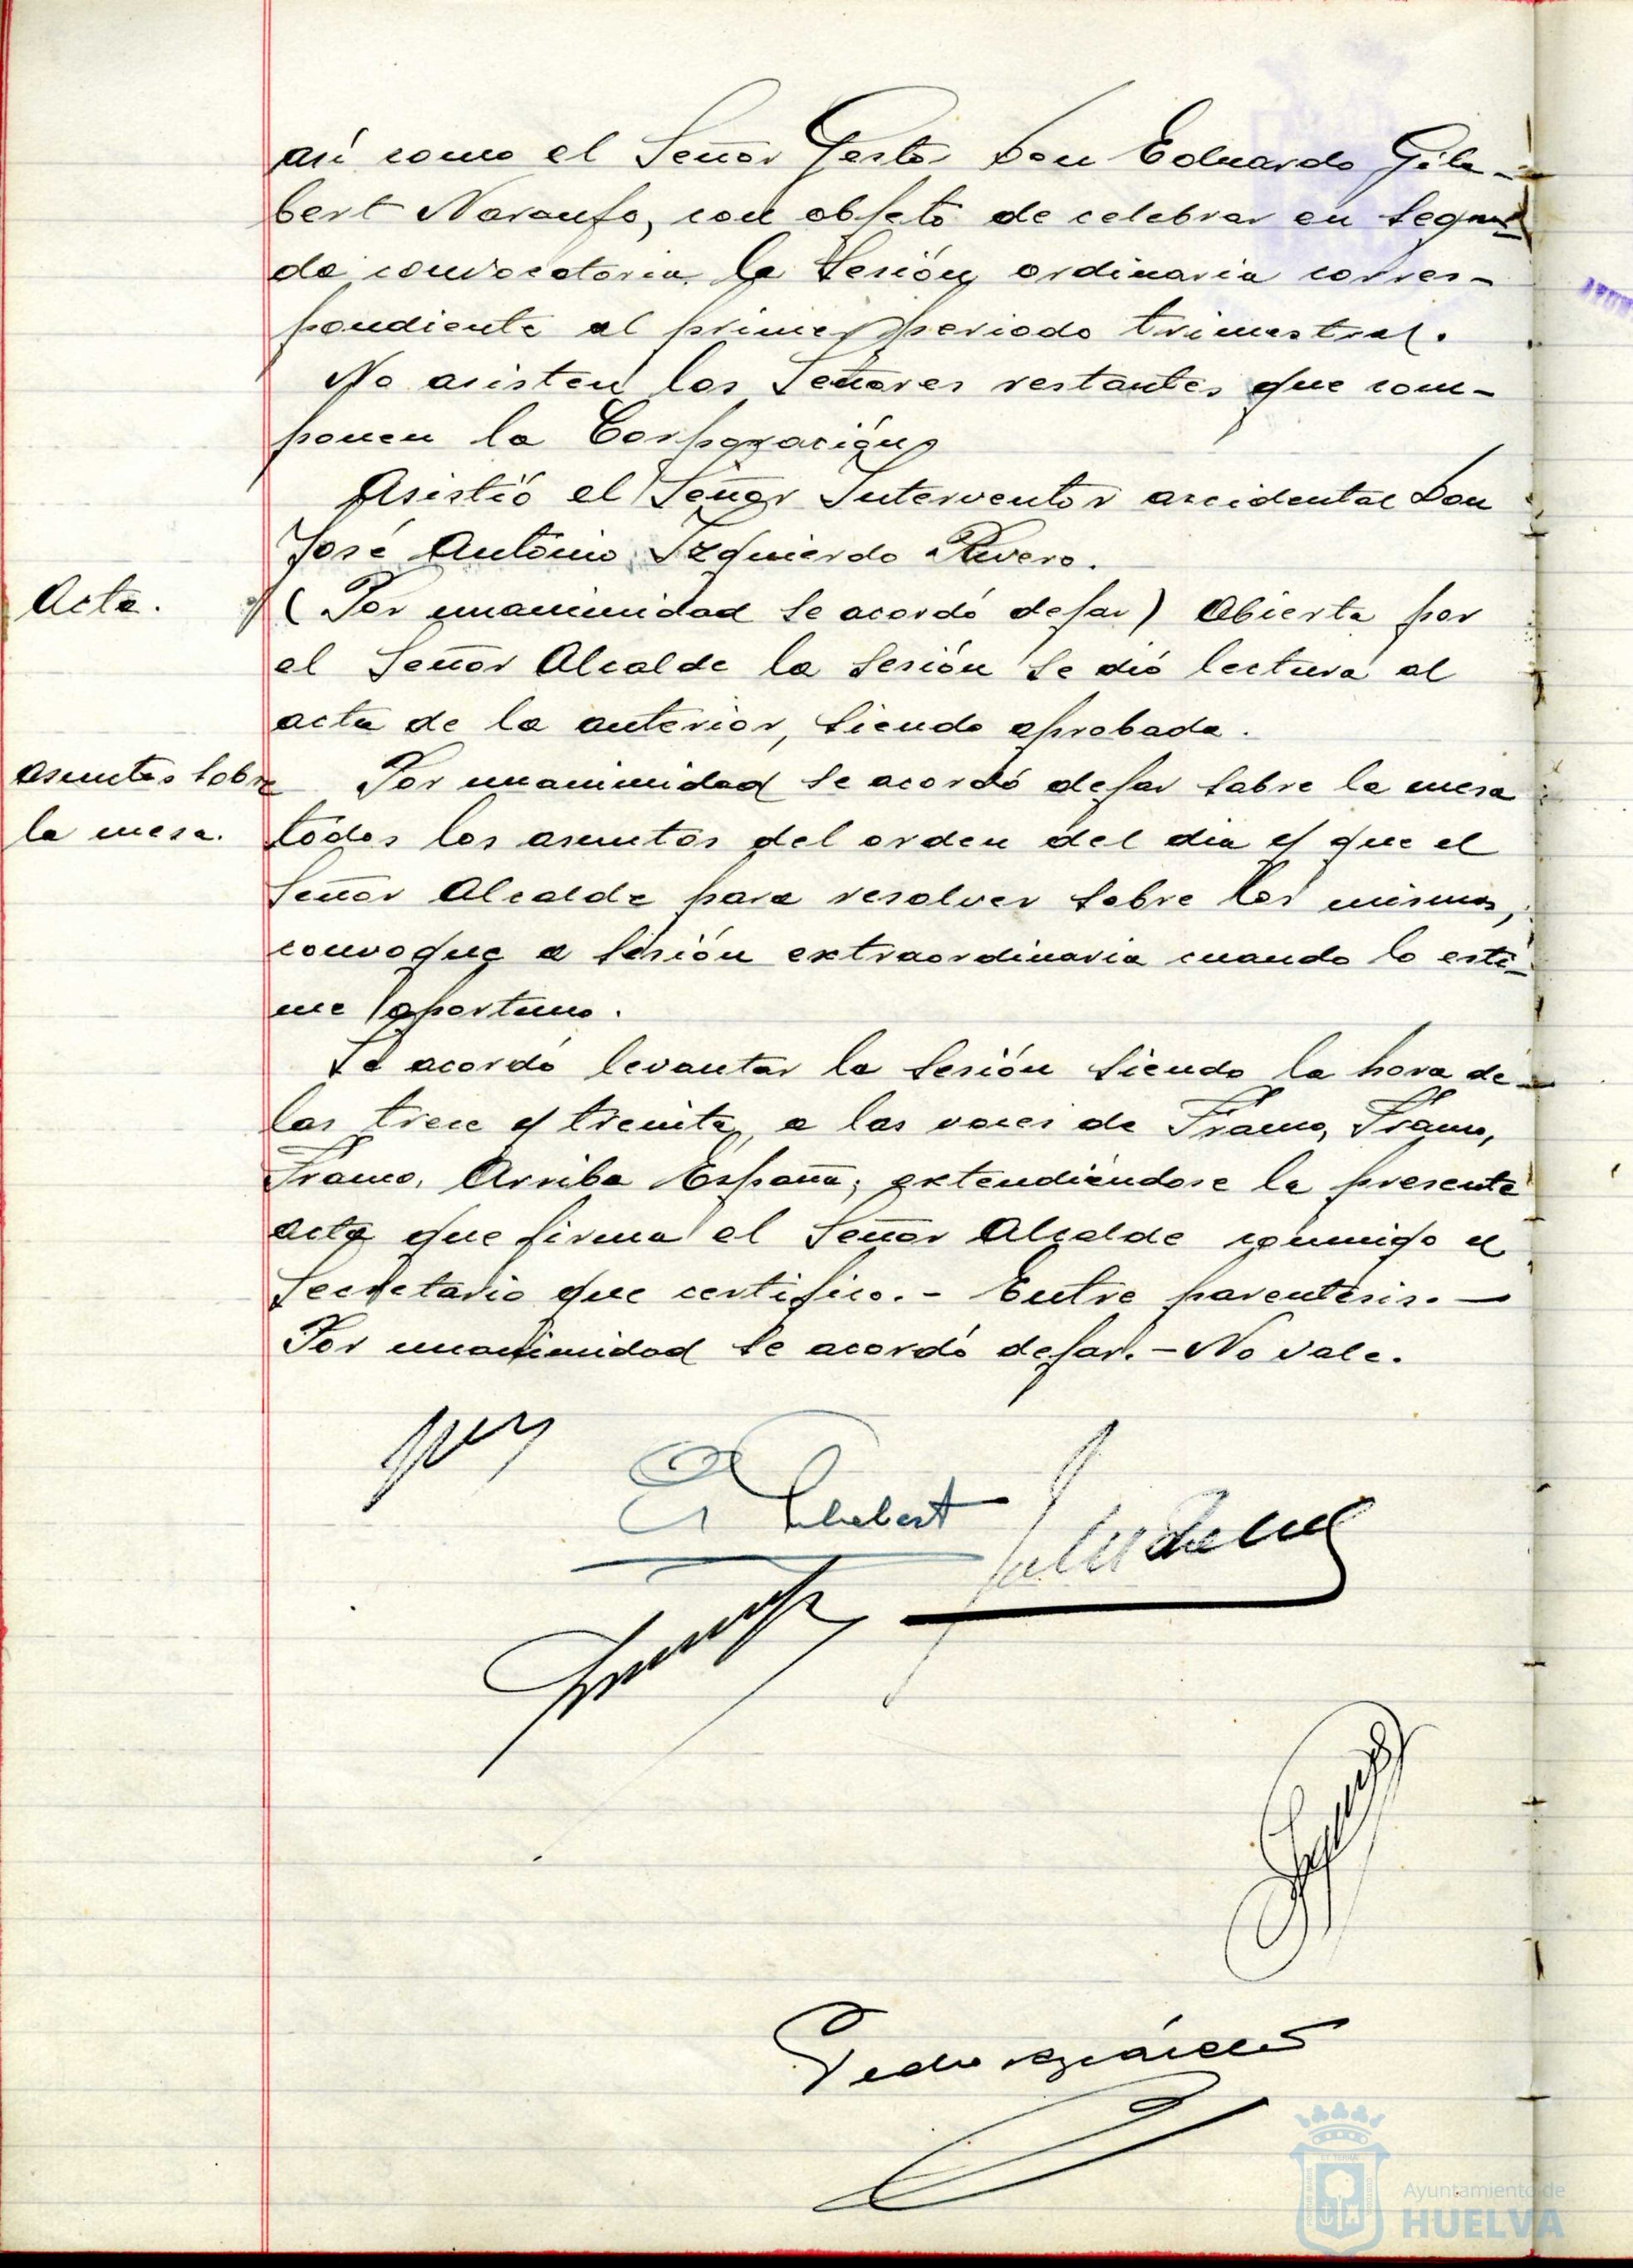 así como el Señor Gestor Don Eduardo Gila-
bert Naranjo, con objeto de celebrar en segun-
da convocatoria, la Sesión ordinaria corres-
pondiente al primer periodo trimestral.
No asisten los Señores restantes que com-
ponen la Corporación
Asistió el Señor Interventor accidental Don
José Antonio Izquierdo Rivero.
Acta.
(Por unanimidad se acordó dejar) Abierta por
el Señor Alcalde la Sesión se dió lectura al
acta de la anterior, siendo aprobada.
Asuntos sobre
la mesa.
Por unanimidad se acordó dejar sobre la mesa
todos los asuntos del orden del día y que el
Señor Alcalde para resolver sobre los mismos,
convoque a sesión extraordinaria cuando lo esti-
me oportuno.
Se acordó levantar la Sesión siendo la hora de
las trece y treinta, a las voces de Franco, Franco,
Franco, Arriba España; extendiéndose la presente
acta que firma el Señor Alcalde conmigo el
Secretario que certifico.- Entre parentesis.—
Por unanimidad se acordó dejar.-No vale.
Pedro
Ayuntamiento de
HUELVA